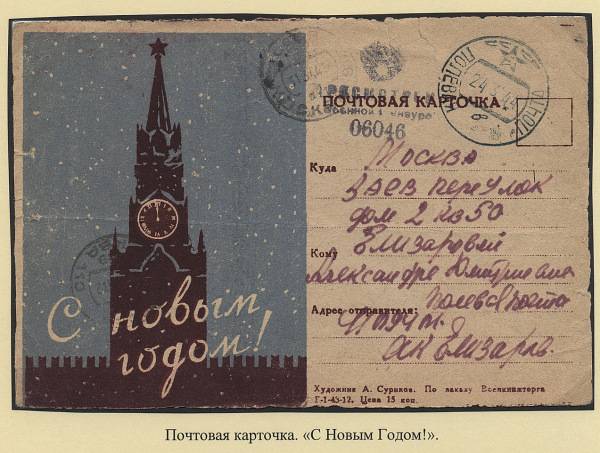 С новым
годом!
РАССМОТРЕНО
Военной Цензурой
06046
ПОЛЕВАЯ
ПОЧТА
24.3.44
ПОЧТОВАЯ КАРТОЧКА
Куда
Москва
Заев переулок
дом 2 кв 50
Кому
Елизаровой
Александре Дмитриевне
Адрес отправителя:
Полев. почта
Елизаров.
Художник А. Суриков. По заказу Военкнижторга
Г-1-43-12. Цена 15 коп.
Почтовая карточка. «С Новым Годом!».